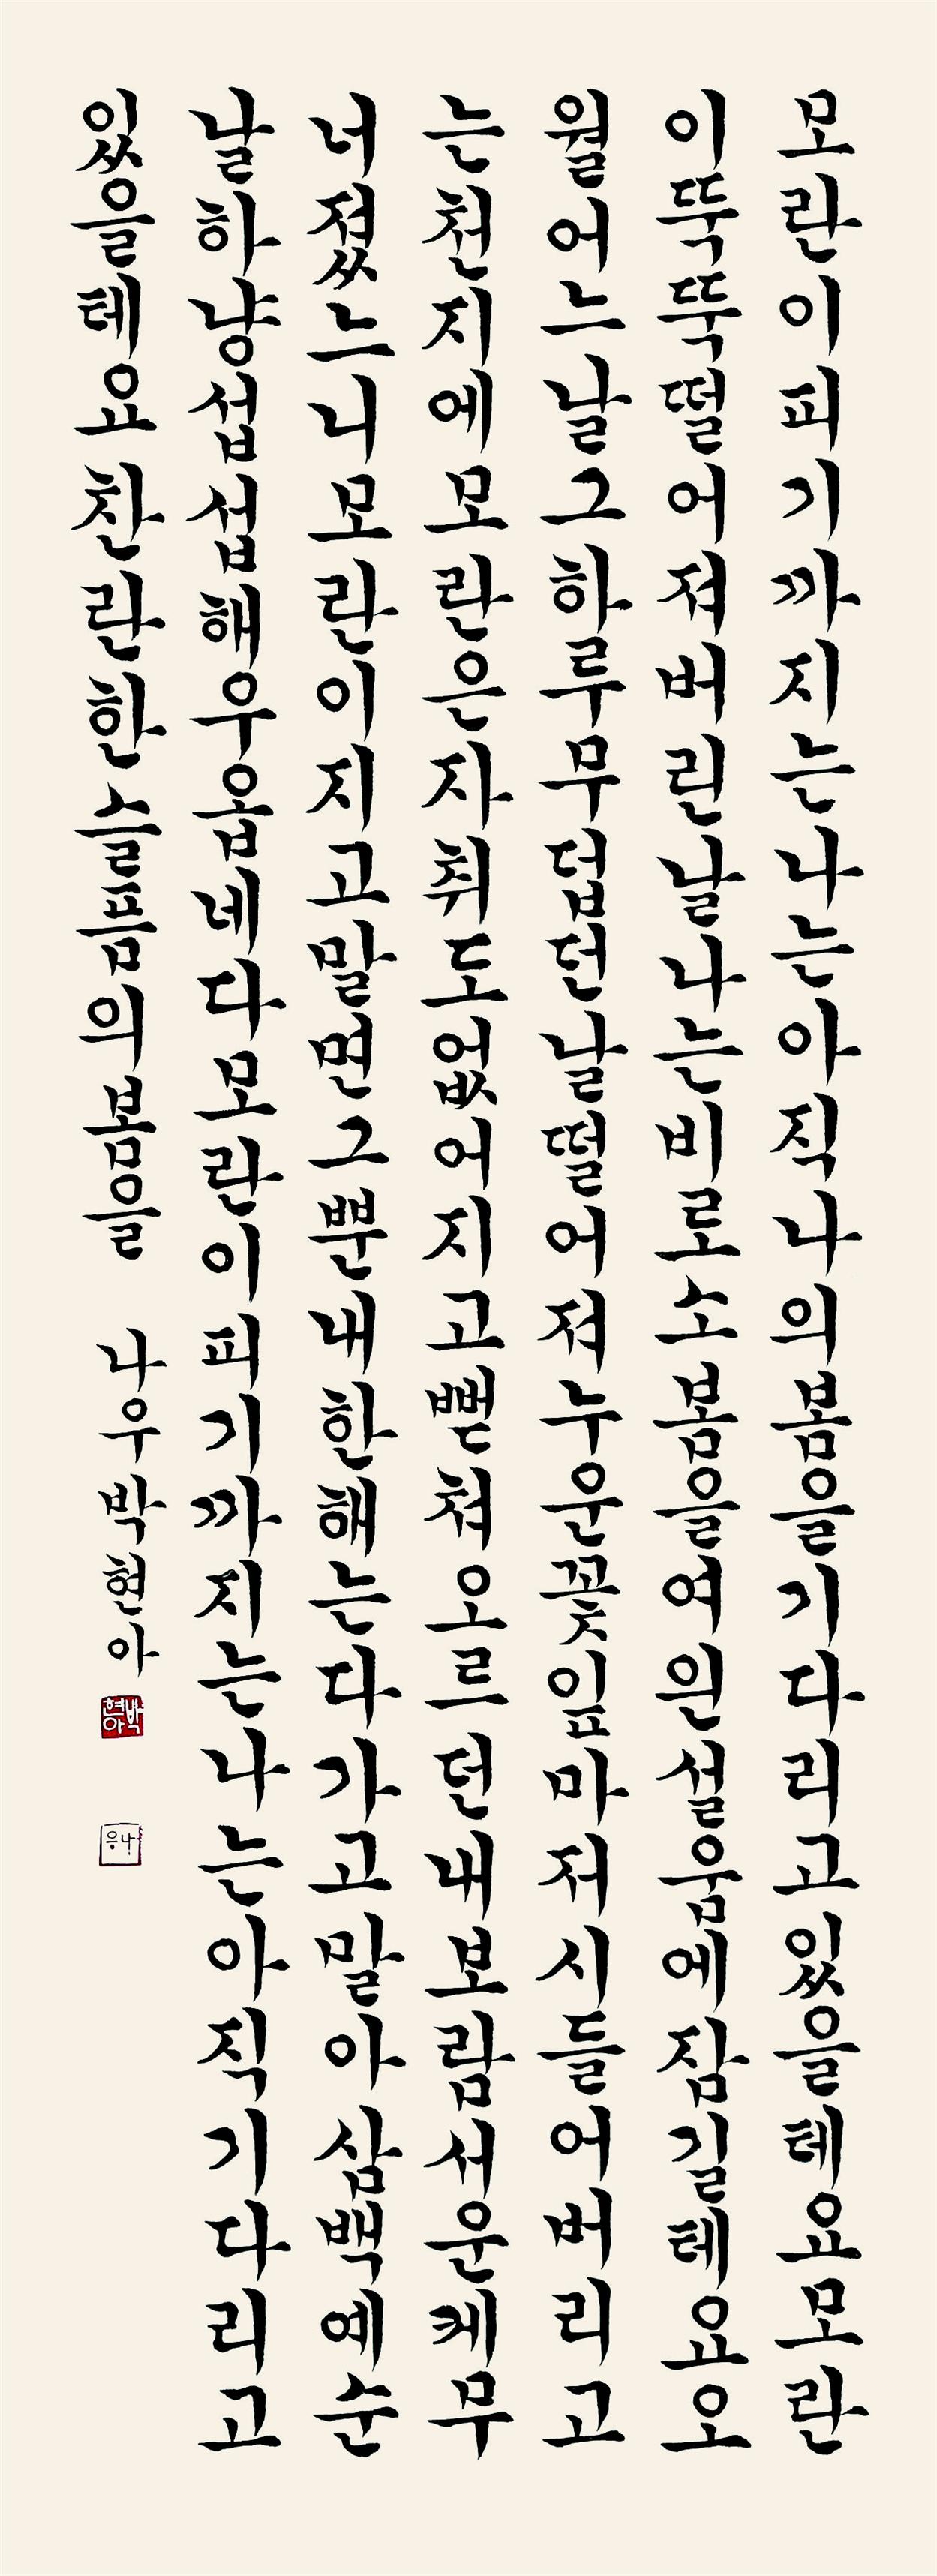 모란이피기까지는나는아직나의봄을기다리고있을테요모란
이뚝뚝떨어져버린날나는비로소봄을여윈설움에잠길테요오
월어느날그하루무덥던날떨어져누운꽃잎마저시들어버리고
는천지에모란은자취도없어지고뻗쳐오르던내보람서운케무
너졌느니모란이지고말면그뿐내한해는다가고말아삼백예순
날하냥섭섭해우옵네다모란이피기까지는나는아직기다리고
있을테요찬란한슬픔의봄을 나우박현아
박현아